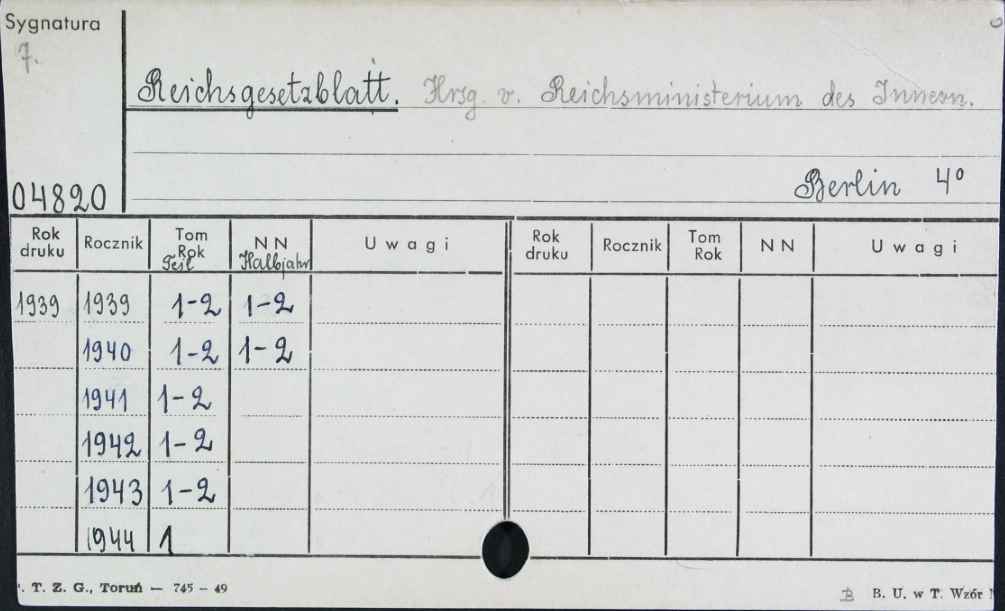 Sygnatura
7.
Reichsgesetzblatt. Hrsg. v. Reichsministerium des Innern.
Berlin 4°
04820
Rok druku Rocznik Tom Rok Teil N N Halbjahr U w a g i Rok druku Rocznik Tom Rok N N U w a g i
1939 1939 1-2 1-2
1940 1-2 1-2
1941 1-2
1942 1-2
1943 1-2
1944 1
. T. Z. G., Toruń — 745 – 49 B. U. w T. Wzór